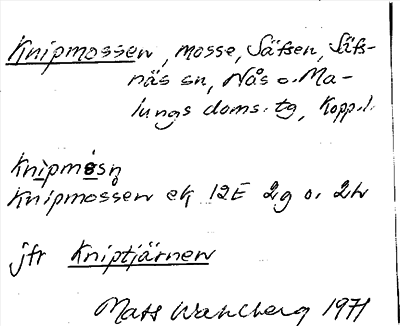 Knipmossen, mosse, Säfsen, Säfs-
näs sn, Nås o. Ma-
lungs doms. tg, Kopp.l.
Knipmósn̥
Knipmossen ek 12E 2g o. 2h
jfr Kniptjärnen
Mats Wahlberg 1971